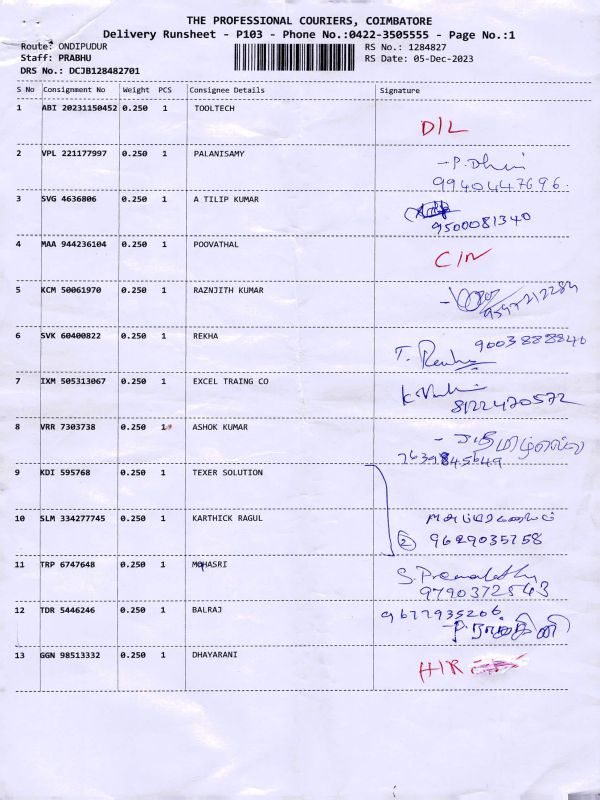 THE PROFESSIONAL COURIERS, COIMBATORE
Delivery Runsheet - P103 - Phone No.:0422-3505555 - Page No.:1
Route: ONDIPUDUR RS No.: 1284827
Staff: PRABHU RS Date: 05-Dec-2023
DRS No.: DCJB128482701
S No Consignment No Weight PCS Consignee Details Signature
1 ABI 20231150452 0.250 1 TOOLTECH
D/L
2 VPL 221177997 0.250 1 PALANISAMY
9940447696
3 SVG 4636806 0.250 1 A TILIP KUMAR
9500081340
4 MAA 944236104 0.250 1 POOVATHAL
C/N
5 KCM 50061970 0.250 1 RAZNJITH KUMAR
6 SVK 60400822 0.250 1 REKHA
9003888840
7 IXM 505313067 0.250 1 EXCEL TRAING CO
8122470572
8 VRR 7303738 0.250 1 ASHOK KUMAR
9 KDI 595768 0.250 1 TEXER SOLUTION
10 SLM 334277745 0.250 1 KARTHICK RAGUL
2 9629035758
11 TRP 6747648 0.250 1 MOHASRI
9790372543
12 TDR 5446246 0.250 1 BALRAJ
9677935206
13 GGN 98513332 0.250 1 DHAYARANI